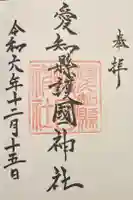 奉拝
愛知縣護國神社
令和六年十二月十五日